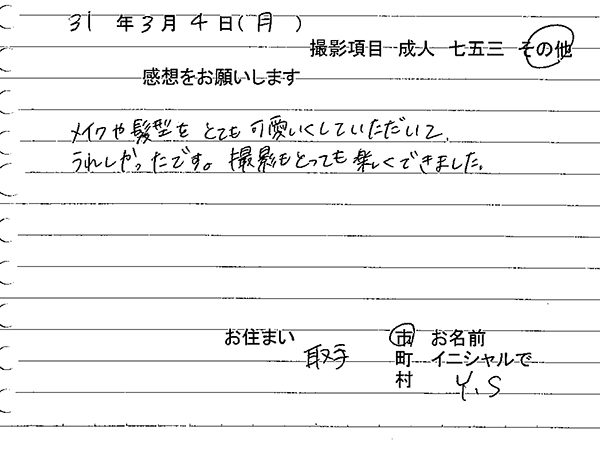 31 年 3 月 4 日(月)
撮影項目 成人 七五三 その他
感想をお願いします
メイクや髪型を とても可愛いくしていただいて、
うれしかったです。撮影もとっても楽しくできました。
お住まい 取手 市 お名前
町 イニシャルで
村 Y.S